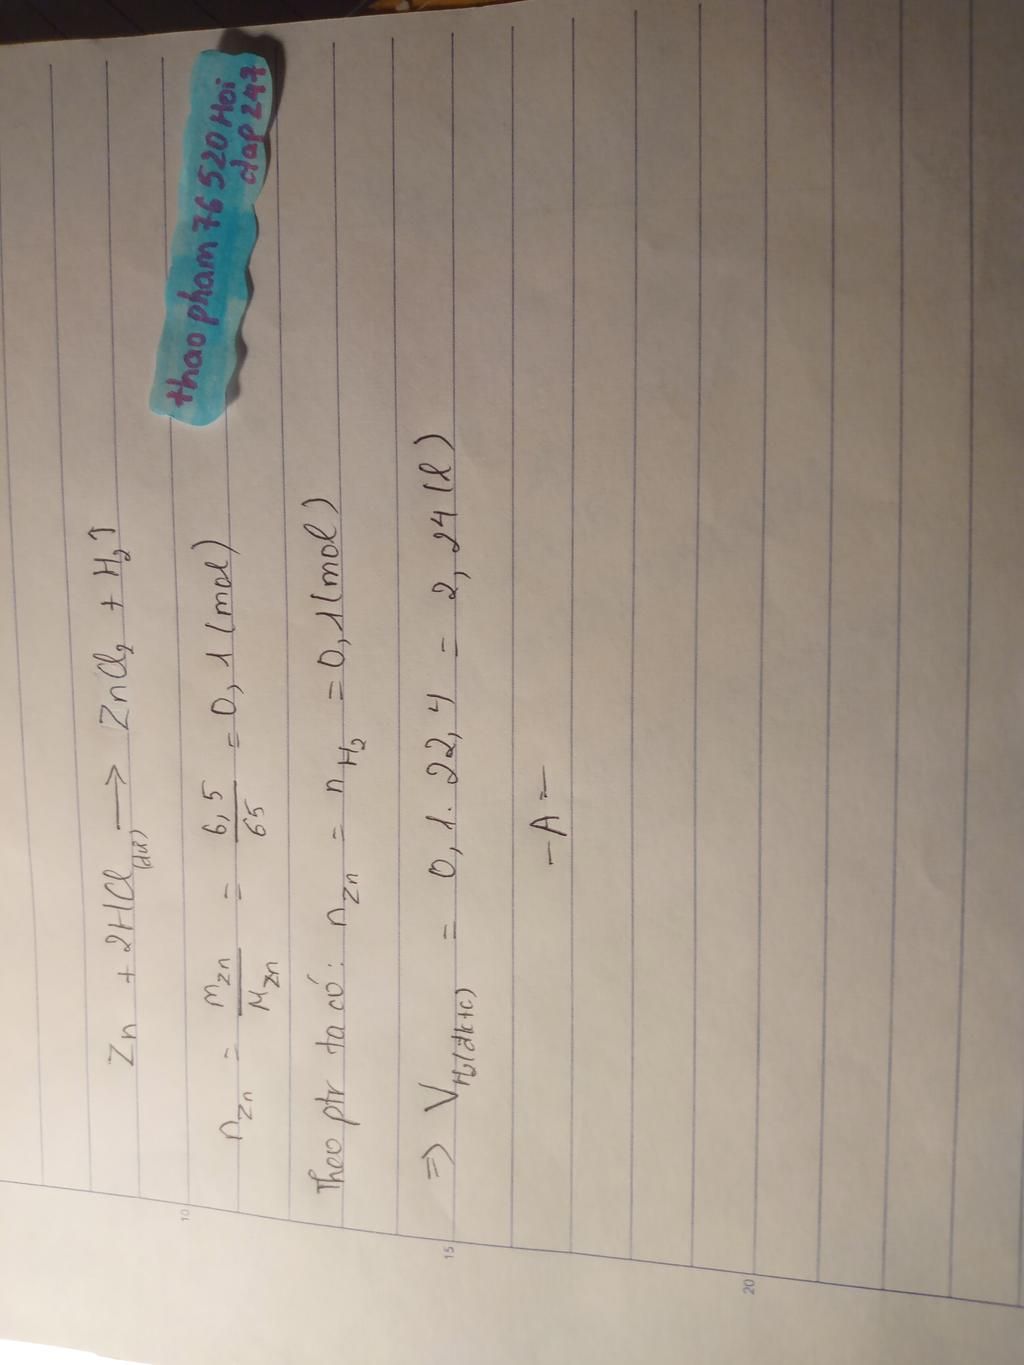 Zn + 2HCl (dư) → ZnCl₂ + H₂↑
thaopham76520Hoi
dap247
n_Zn = m_Zn / M_Zn = 6,5 / 65 = 0,1 (mol)
Theo ptr ta có: n_Zn = n_H₂ = 0,1 (mol)
⇒ V_H₂(đktc) = 0,1. 22,4 = 2,24 (l)
- A =
10
15
20